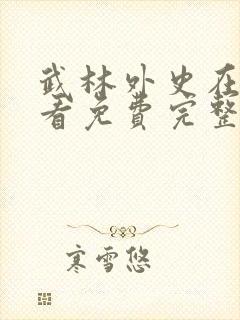 武林外史在
看免费完整
寒雪悠